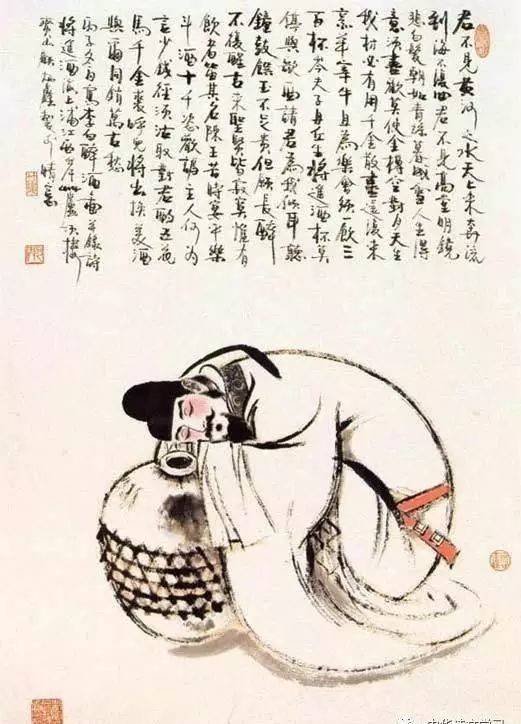 君不見黄河之水天上来奔流
到海不復回君不見高堂明鏡
悲白髮朝如青絲暮成雪人生得
意須盡歡莫使金樽空對月天生
我材必有用千金散盡還復来
烹羊宰牛且為樂會須一飲三
百杯岑夫子丹丘生將進酒杯莫
停與歌曲請君為我傾耳聽
鐘鼓饌玉不足貴但願長醉
不復醒古来聖賢皆寂莫惟有
飲者留其名陳王昔時宴平樂
斗酒十千恣歡謔主人何為
言少錢徑須沽取對君酌五花
馬千金裘呼兒將出換美酒
與爾同銷萬古愁
丙子冬日寫李白醉酒圖並錄詩
將進酒海上浦江